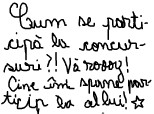 Cum se parti-
cipă la concur-
suri?!! Vă roooog!
Cine îmi spune par-
ticip la allui! ☆